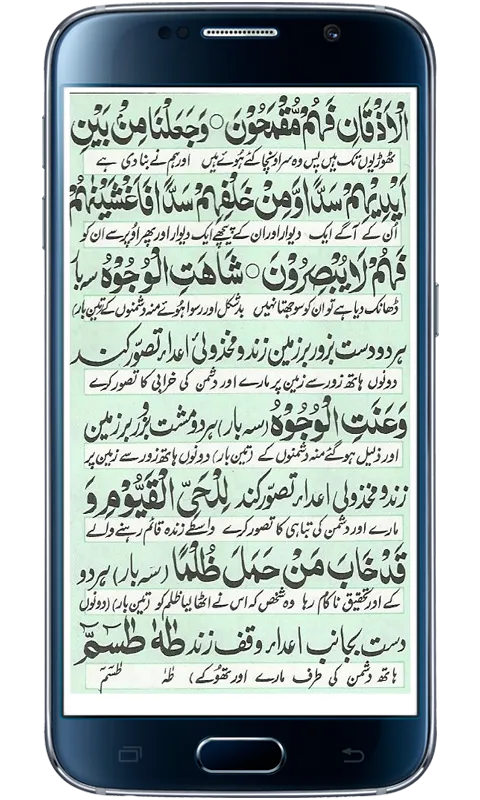 الْاَذْقَانِ فَهُمْ مُّقْمَحُوْنَ ○ وَجَعَلْنَا مِنْۢ بَيْنِ
ٹھوڑیوں تک ہیں پس وہ سر اونچا کئے ہوئے ہیں اور ہم نے بنا دی ہے
اَيْدِيْهِمْ سَدًّا وَّمِنْ خَلْفِهِمْ سَدًّا فَاَغْشَيْنٰهُمْ
اُن کے آگے ایک دیوار اور ان کے پیچھے ایک دیوار اور پھر اوپر سے ان کو
فَهُمْ لَا يُبْصِرُوْنَ ○ شَاهَتِ الْوُجُوْهُ سہ بار
ڈھانک دیا ہے تو ان کو سوجھتا نہیں بدشکل اور رسوا ہوئے منہ دشمنوں کے (تین بار)
ہر دو دست بزور بر زمین زند و مخذولی اعداء تصوّر کند
دونوں ہاتھ زور سے زمین پر مارے اور دشمن کی خرابی کا تصور کرے
وَعَنَتِ الْوُجُوْهُ (سہ بار) ہر دو مشت بزور بر زمین
اور ذلیل ہو گئے منہ دشمنوں کے (تین بار) دونوں ہاتھ زور سے زمین پر
زند و مخذولی اعداء تصوّر کند لِلْحَیِّ الْقَیُّوْمِ وَ
مارے اور دشمن کی تباہی کا تصور کرے واسطے زندہ قائم رہنے والے
قَدْ خَابَ مَنْ حَمَلَ ظُلْمًا (سہ بار) ہر دو
کے اور تحقیق ناکام رہا وہ شخص کہ اس نے اٹھا لیا ظلم کو (تین بار) (دونوں
دست بجانب اعداء وقف زند طٰهٰ طٰسٓمّٓ
ہاتھ دشمن کی طرف مارے اور تھوکے) طٰہٰ طٰسٓمّٓ